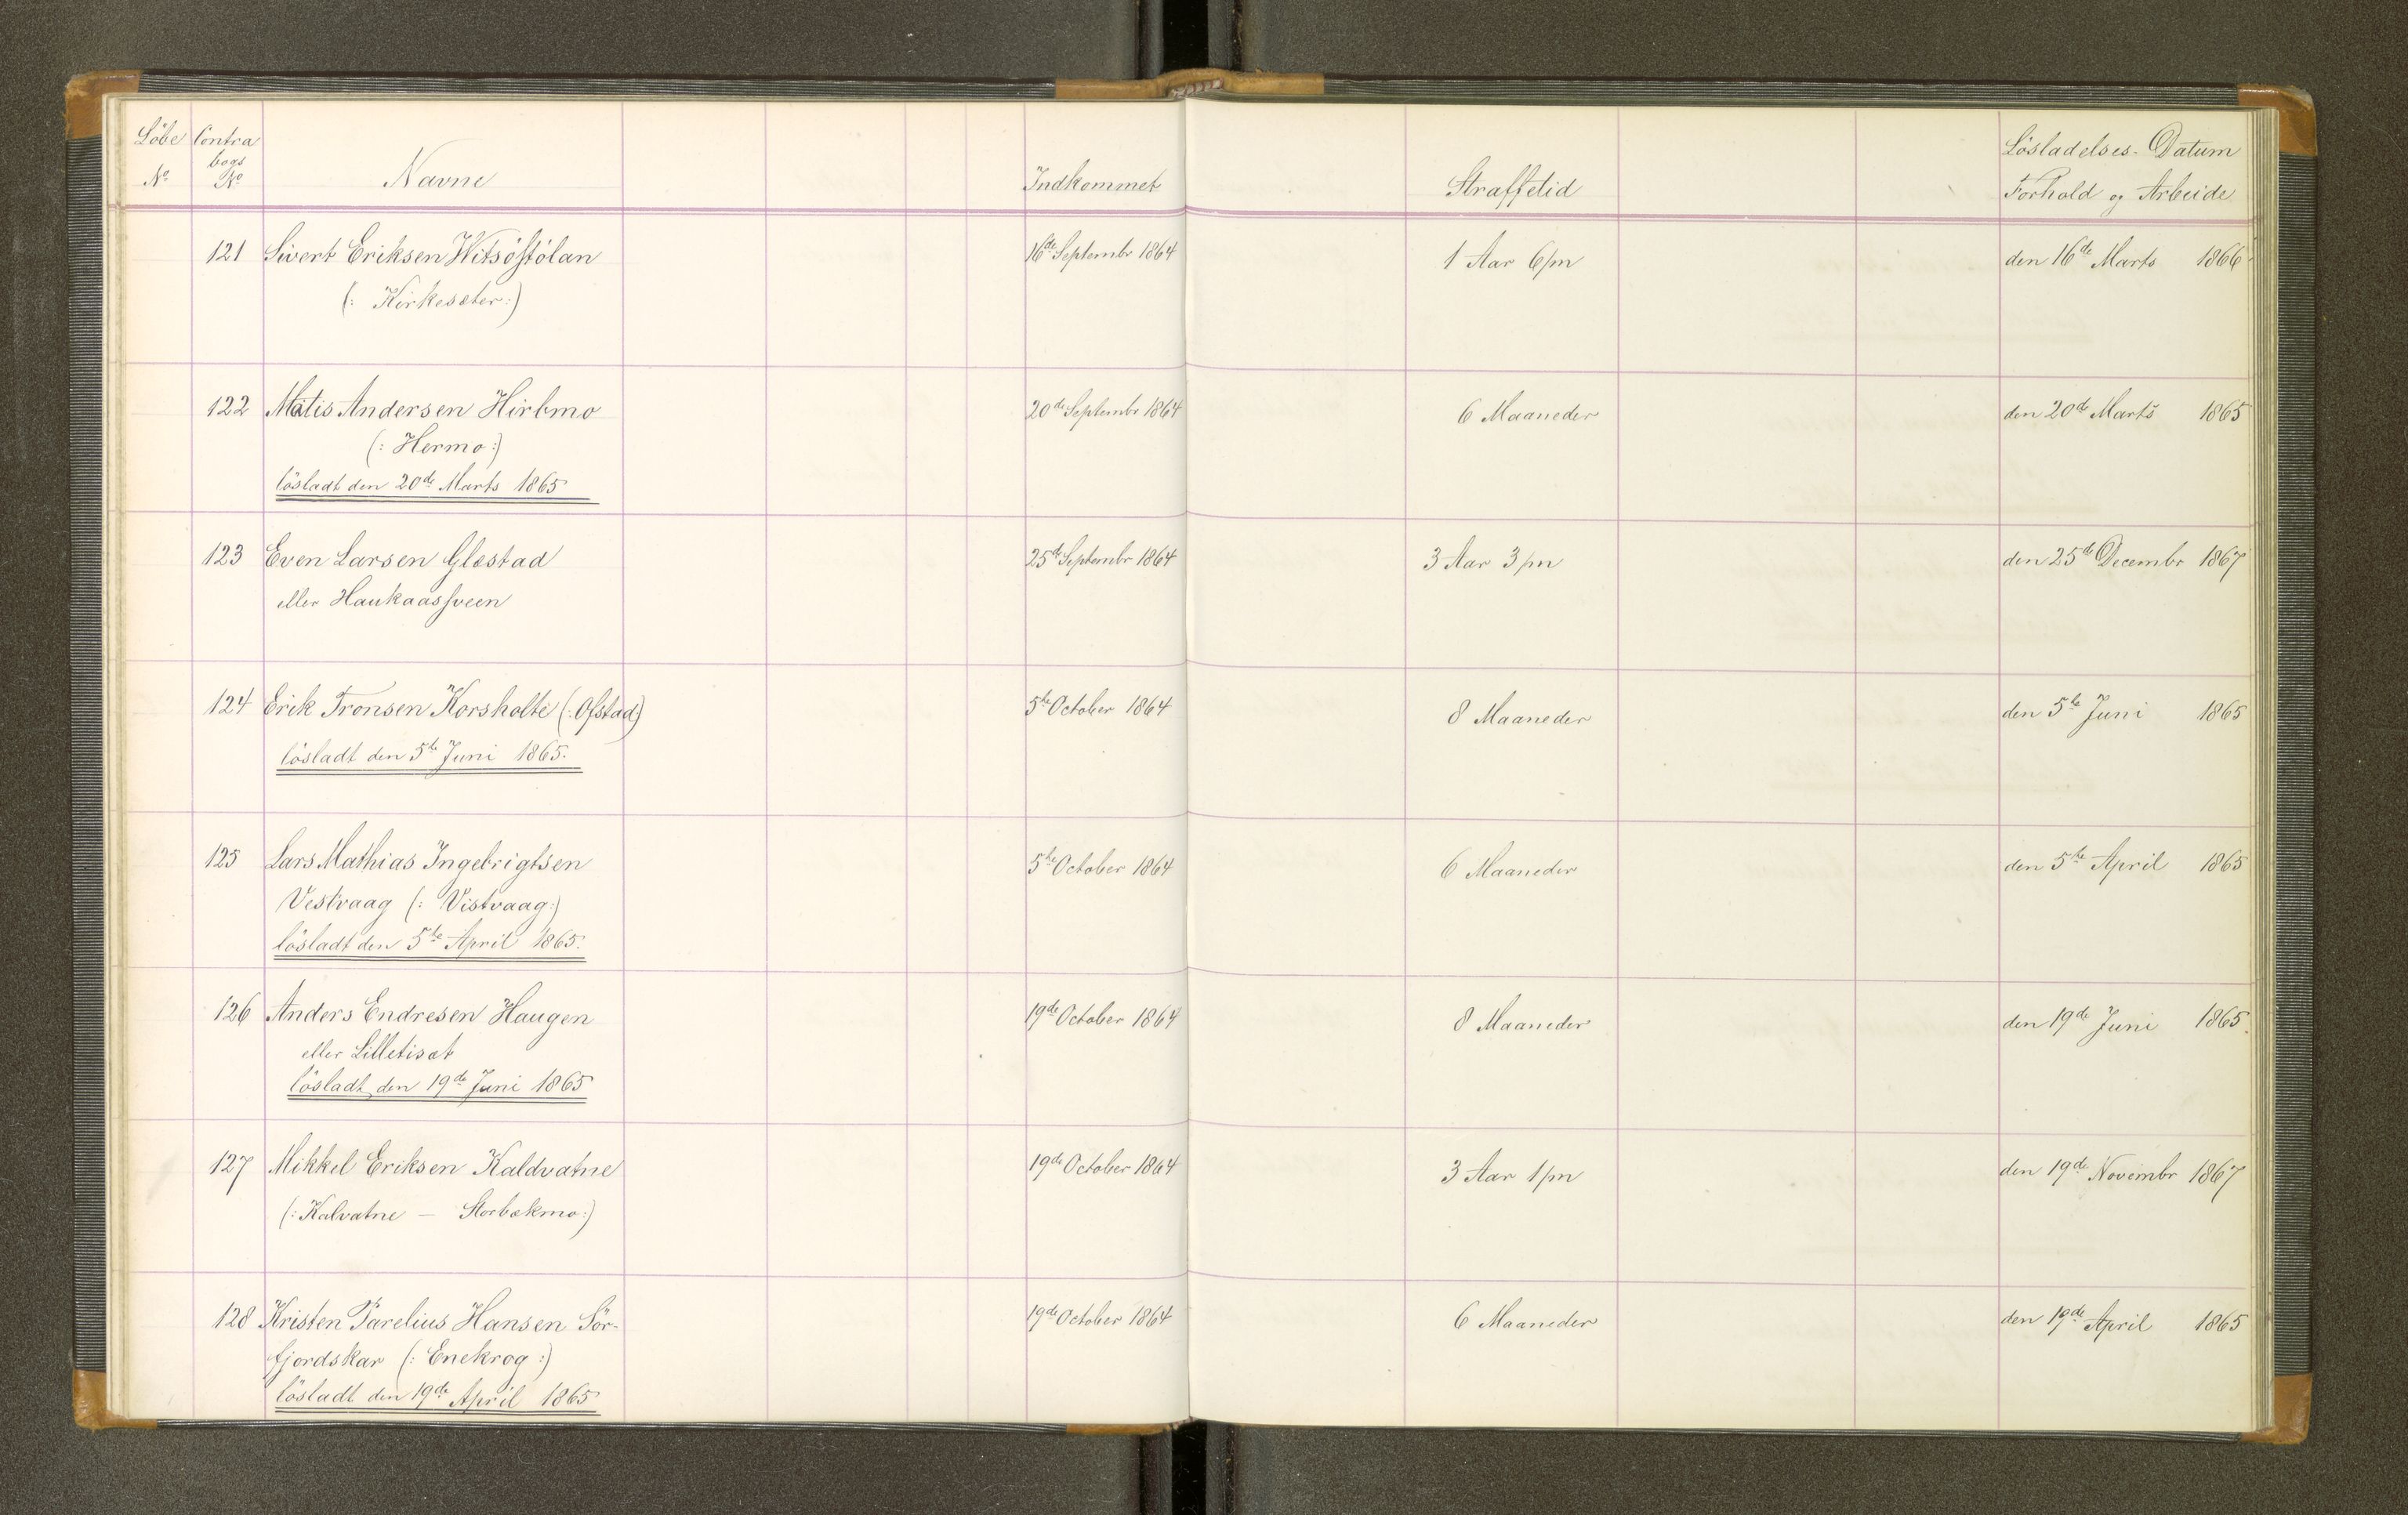 Löbe Contra Lösladelses-Datum
bogs
No No Navne Indkommet Straffetid Forhold og Arbeide
121 Sivert Eriksen Witsöstölan 16de Septembr 1864 1 Aar 6/m den 16de Marts 1866
(: Kirkesæter :)
122 Matis Andersen Hirbmo 20de Septembr 1864 6 Maaneder den 20de Marts 1865
(: Hermo :)
lösladt den 20de Marts 1865
123 Even Larsen Glæstad 25de Septembr 1864 3 Aar 3/m den 25de Decembr 1867
eller Haukaassveen
124 Erik Tronsen Korsholte (: Ofstad) 5te October 1864 8 Maaneder den 5te Juni 1865
lösladt den 5te Juni 1865.
125 Lars Mathias Ingebrigtsen 5te October 1864 6 Maaneder den 5te April 1865
Vestvaag (: Vistvaag :)
lösladt den 5te April 1865.
126 Anders Endresen Haugen 19de October 1864 8 Maaneder den 19de Juni 1865.
eller Lilletisat
lösladt den 19de Juni 1865
127 Mikkel Eriksen Kaldvatne 19de October 1864 3 Aar 1/m den 19de Novembr 1867
(: Kalvatne — Storbækmo :)
128 Kristen Parelius Hansen Sör- 19de October 1864 6 Maaneder den 19de April 1865
fjordskar (: Enekrog :)
lösladt den 19de April 1865